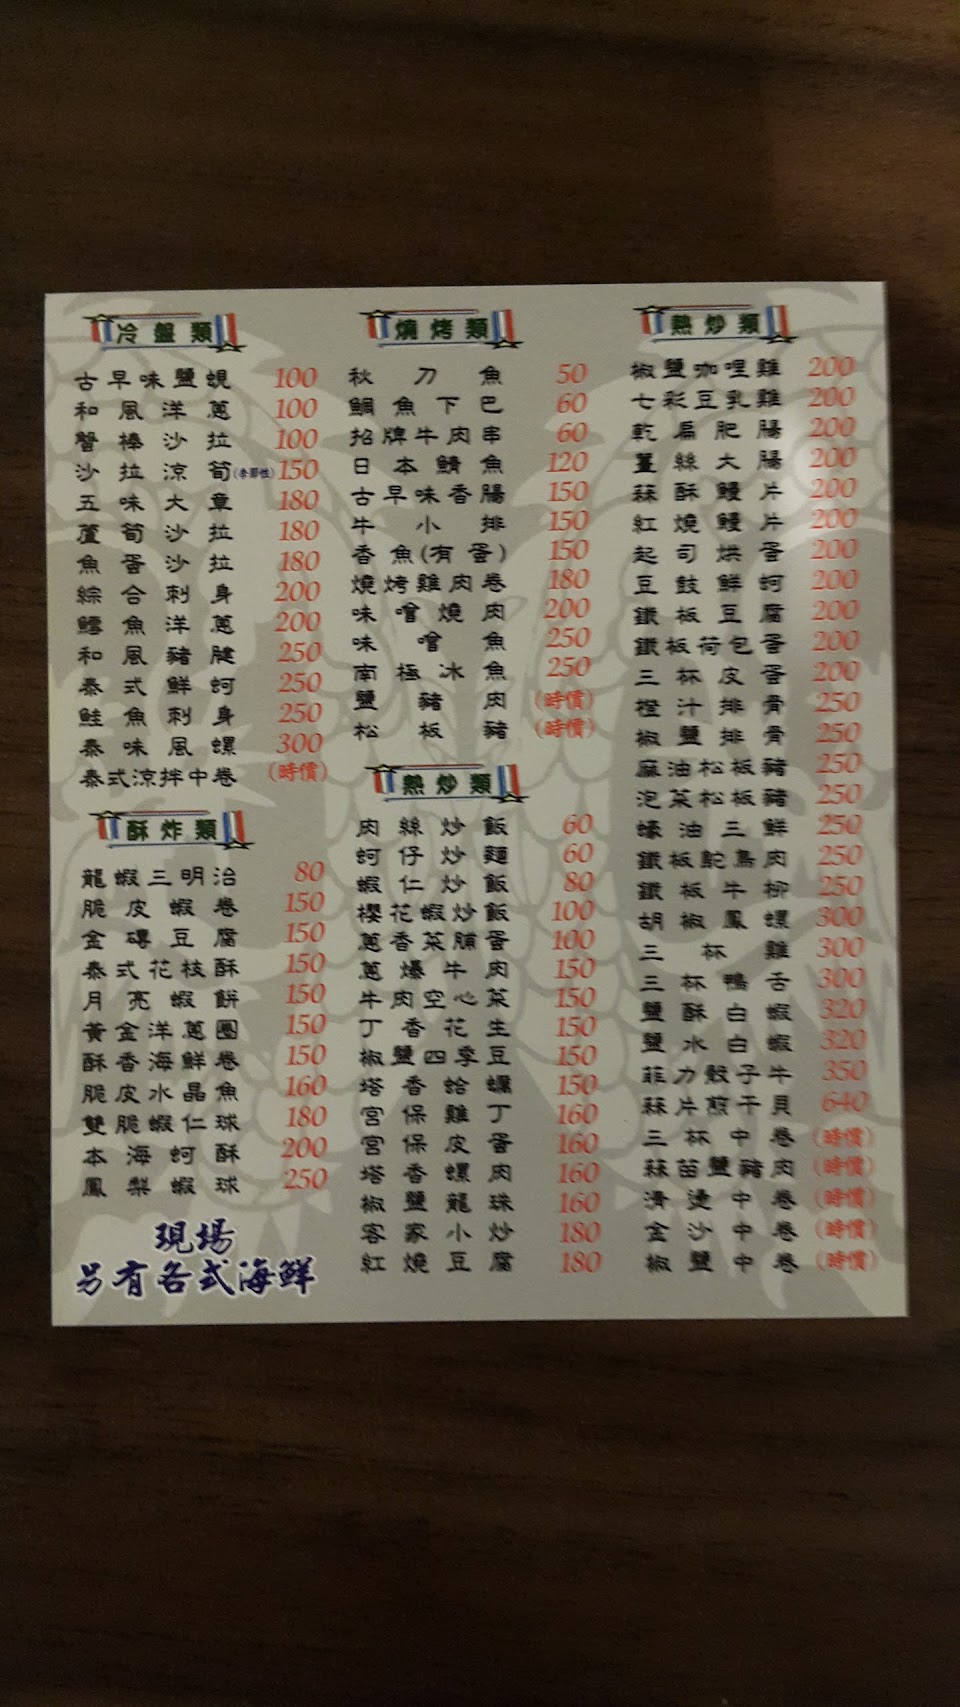 冷盤類
古早味鹽蜆 100
和風洋蔥 100
蟹棒沙拉 100
沙拉涼筍(季節性) 150
五味大章 180
蘆筍沙拉 180
魚蛋沙拉 180
綜合刺身 200
鱈魚洋蔥 200
和風豬腱 250
泰式鮮蚵 250
鮭魚刺身 250
泰味風螺 300
泰式涼拌中卷 (時價)
酥炸類
龍蝦三明治 80
脆皮蝦卷 150
金磚豆腐 150
泰式花枝酥 150
月亮蝦餅 150
黃金洋蔥圈 150
酥香海鮮卷 150
脆皮水晶魚 160
雙脆蝦仁球 180
本海蚵酥 200
鳳梨蝦球 250
現場
另有各式海鮮
燒烤類
秋刀魚 50
鯛魚下巴 60
招牌牛肉串 60
日本鯖魚 120
古早味香腸 150
牛小排 150
香魚(有蛋) 150
燒烤雞肉卷 180
味噌燒肉 200
味噌魚 250
南極冰魚 250
鹽豬肉 (時價)
松板豬 (時價)
熱炒類
肉絲炒飯 60
蚵仔炒麵 60
蝦仁炒飯 80
櫻花蝦炒飯 100
蔥香菜脯蛋 100
蔥爆牛肉 150
牛肉空心菜 150
丁香花生 150
椒鹽四季豆 150
塔香蛤蠣 150
宮保雞丁 160
宮保皮蛋 160
塔香螺肉 160
椒鹽龍珠 160
客家小炒 180
紅燒豆腐 180
熱炒類
椒鹽咖哩雞 200
七彩豆乳雞 200
乾扁肥腸 200
薑絲大腸 200
蒜酥鰻片 200
紅燒鰻片 200
起司烘蛋 200
豆鼓鮮蚵 200
鐵板豆腐 200
鐵板荷包蛋 200
三杯皮蛋 200
橙汁排骨 250
椒鹽排骨 250
麻油松板豬 250
泡菜松板豬 250
蠔油三鮮 250
鐵板鴕鳥肉 250
鐵板牛柳 250
胡椒鳳螺 300
三杯雞 300
三杯鴨舌 300
鹽酥白蝦 320
鹽水白蝦 320
菲力骰子牛 350
蒜片煎干貝 640
三杯中卷 (時價)
蒜苗鹽豬肉 (時價)
清燙中卷 (時價)
金沙中卷 (時價)
椒鹽中卷 (時價)